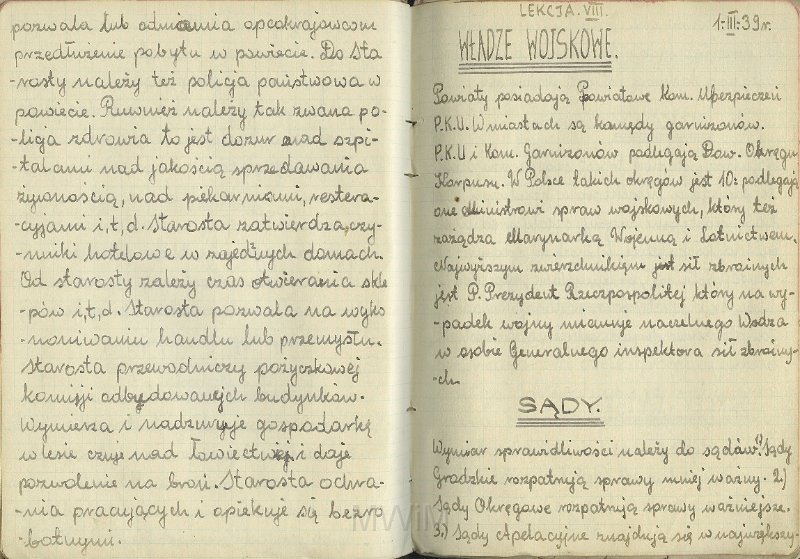 pozwala lub odmawia obcokrajowcom
przedłużenie pobytu w powiecie. Do sta
-rosty należy też policja państwowa w
powiecie. Ruwnież należy tak zwana po-
licja zdrowia to jest dozur nad szpi-
-talami nad jakością sprzedawania
żywnością, nad piekarniami, restera-
-cyjami i,t,d. Starosta zatwierdza, czy-
-nniki hotelowe w zajezdnych domach.
Od starosty zależy czas otwierania skle
-pów i,t,d. Starosta pozwala na wyko
-nywaniu handlu lub przemysłu.
Starosta przewodniczy pożyczkowej
komisji odbudowanych budynków.
Wymierza i nadzoruje gospodarkę
w lesie czuje nad łowiectwej i daje
pozwolenie na broń. Starosta ochra-
-nia pracujących i opiekuje się bezro
-botnymi.
LEKCJA. VIII.
1-III-39r.
WŁADZE WOJSKOWE.
Powiaty posiadają Powiatowe Kom. Ubezpieczeń
P.K.U. W miastach są komędy garnizonów.
P.K.U i Kom. Garnizonów podlegają Dow. Okręgu
Korpusu. W Polsce takich okręgów jest 10: podlegają
one Ministrowi spraw wojskowych, który też
zażądza Marynarką Wojenną i Lotnictwem.
Najwyższym zwierzchnikiem jest sił zbrojnych
jest P. Prezydent Rzeczpospolitej który na wy-
-padek wojny mianuje naczelnego Wodza
w osobie Generalnego inspektora sił zbrojny-
-ch.
SĄDY.
Wymiar sprawidliwości należy do sądów. 1) Sądy
Grodzkie rozpatrują sprawy mniej ważny. 2.)
Sądy Okręgowe rozpatrują sprawy ważniejsze.
3.) Sądy Apelacyjne znajdują się w największy-
MWiM